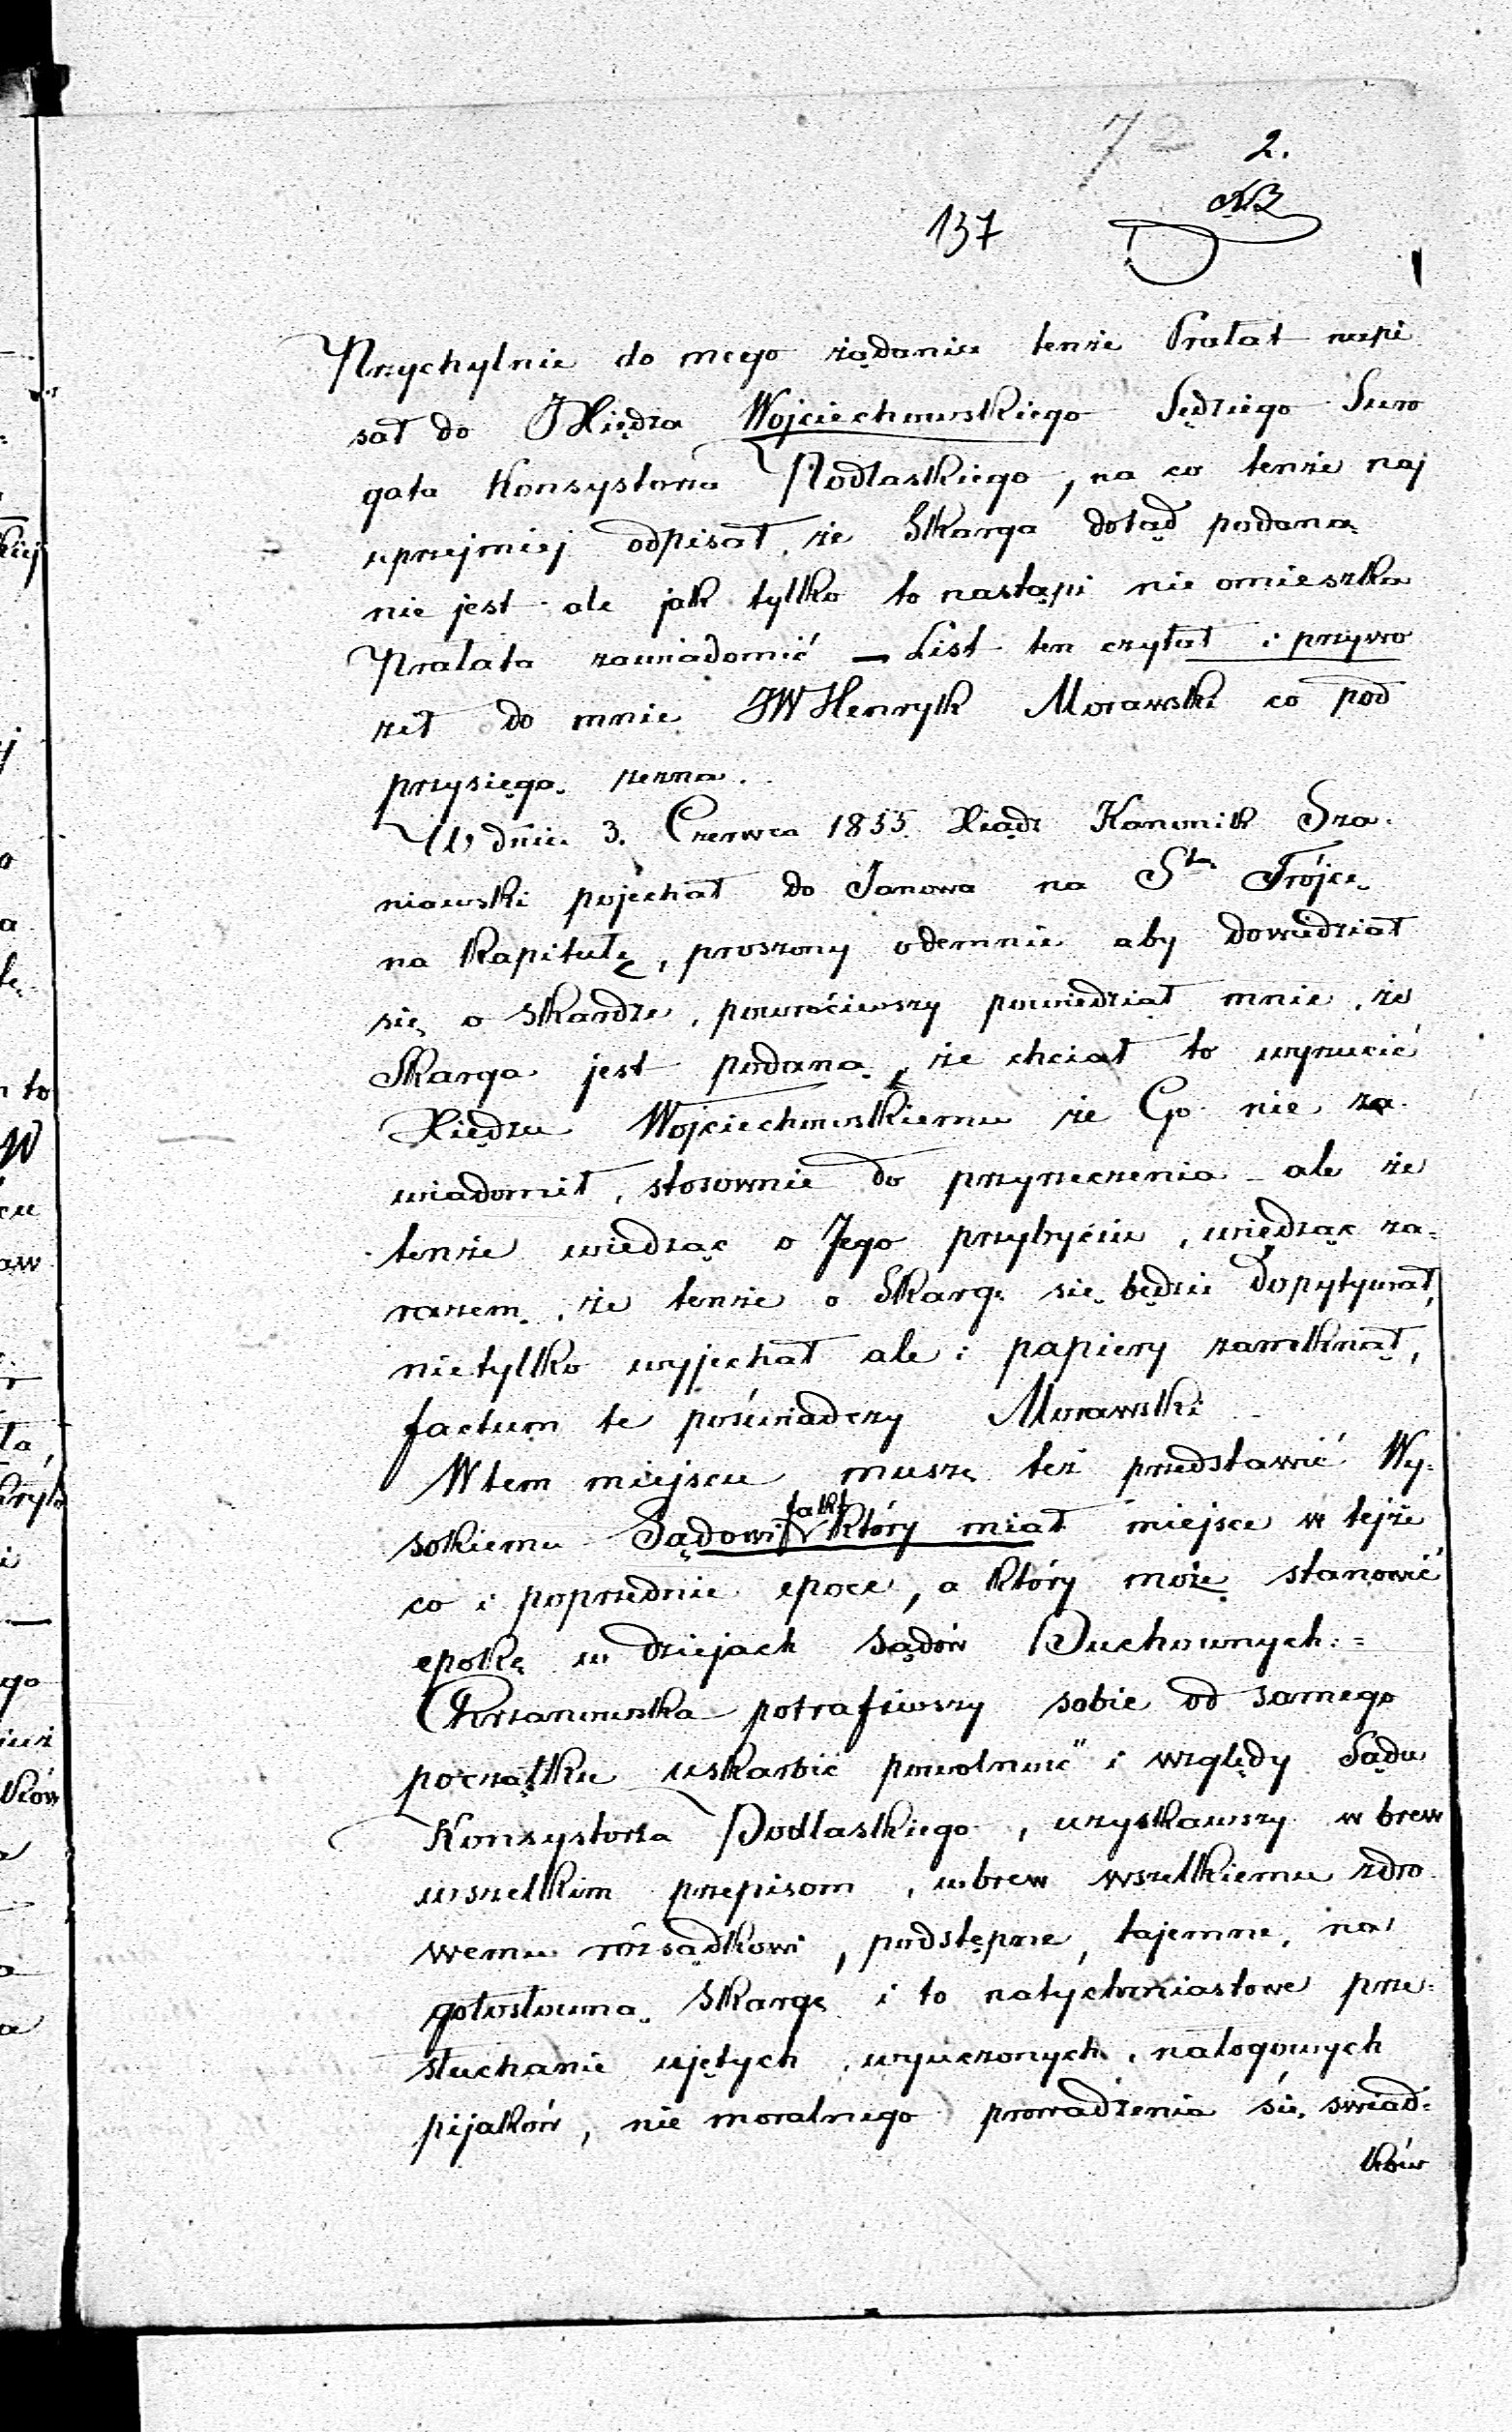 72
2.
NB
137
Przychylnie do mego żądania tenże Prałat napi
sał do JXiędza Wojciechowskiego Sędziego Suro
gata Konsystorza Podlaskiego, na co tenże naj
uprzejmiej odpisał, że Skarga dotąd podaną
nie jest ale jak tylko to nastąpi nie omieszka
Prałata zawiadomić — List ten czytał i przywo
ził do mnie JW Henryk Morawski co pod
przysięgą zezna.
W dniu 3. Czerwca 1855 Xiądz Kanonik Sza-
niawski pojechał do Janowa na Stą Trójcę
na Kapitułę, proszony odemnie aby dowiedział
się o skardze, powróciwszy powiedział mnie, że
Skarga jest podaną, że chciał to wyrzucić
Xiędzu Wojciechowskiemu że Go nie za-
wiadomił, stosownie do przyrzeczenia - ale że
tenże wiedząc o Jego przybyciu, wiedząc za-
razem, że tenże o Skargę się będzie dopytywał,
nietylko wyjechał ale i papiery zamknął,
factum te poświadczy Morawski
W tem miejscu muszę też przedstawić Wy-
sokiemu Sądowi fakt który miał miejsce w tejże
co i poprzednie epoce, a który może stanowić
epokę w dziejach Sądów Duchownych:=
Chrzanowska potrafiwszy sobie od samego
początku uskarbić powolność i względy Sądu
Konsystorza Podlaskiego, uzyskawszy w brew
wszelkim przepisom, wbrew wszelkiemu zdro
wemu rozsądkowi, podstępne, tajemne, na
gołosłowną Skargę i to natychmiastowe prze-
słuchanie ujętych, wyuczonych, nałogowych
pijaków, nie moralnego prowadzenia się, świad-
ków